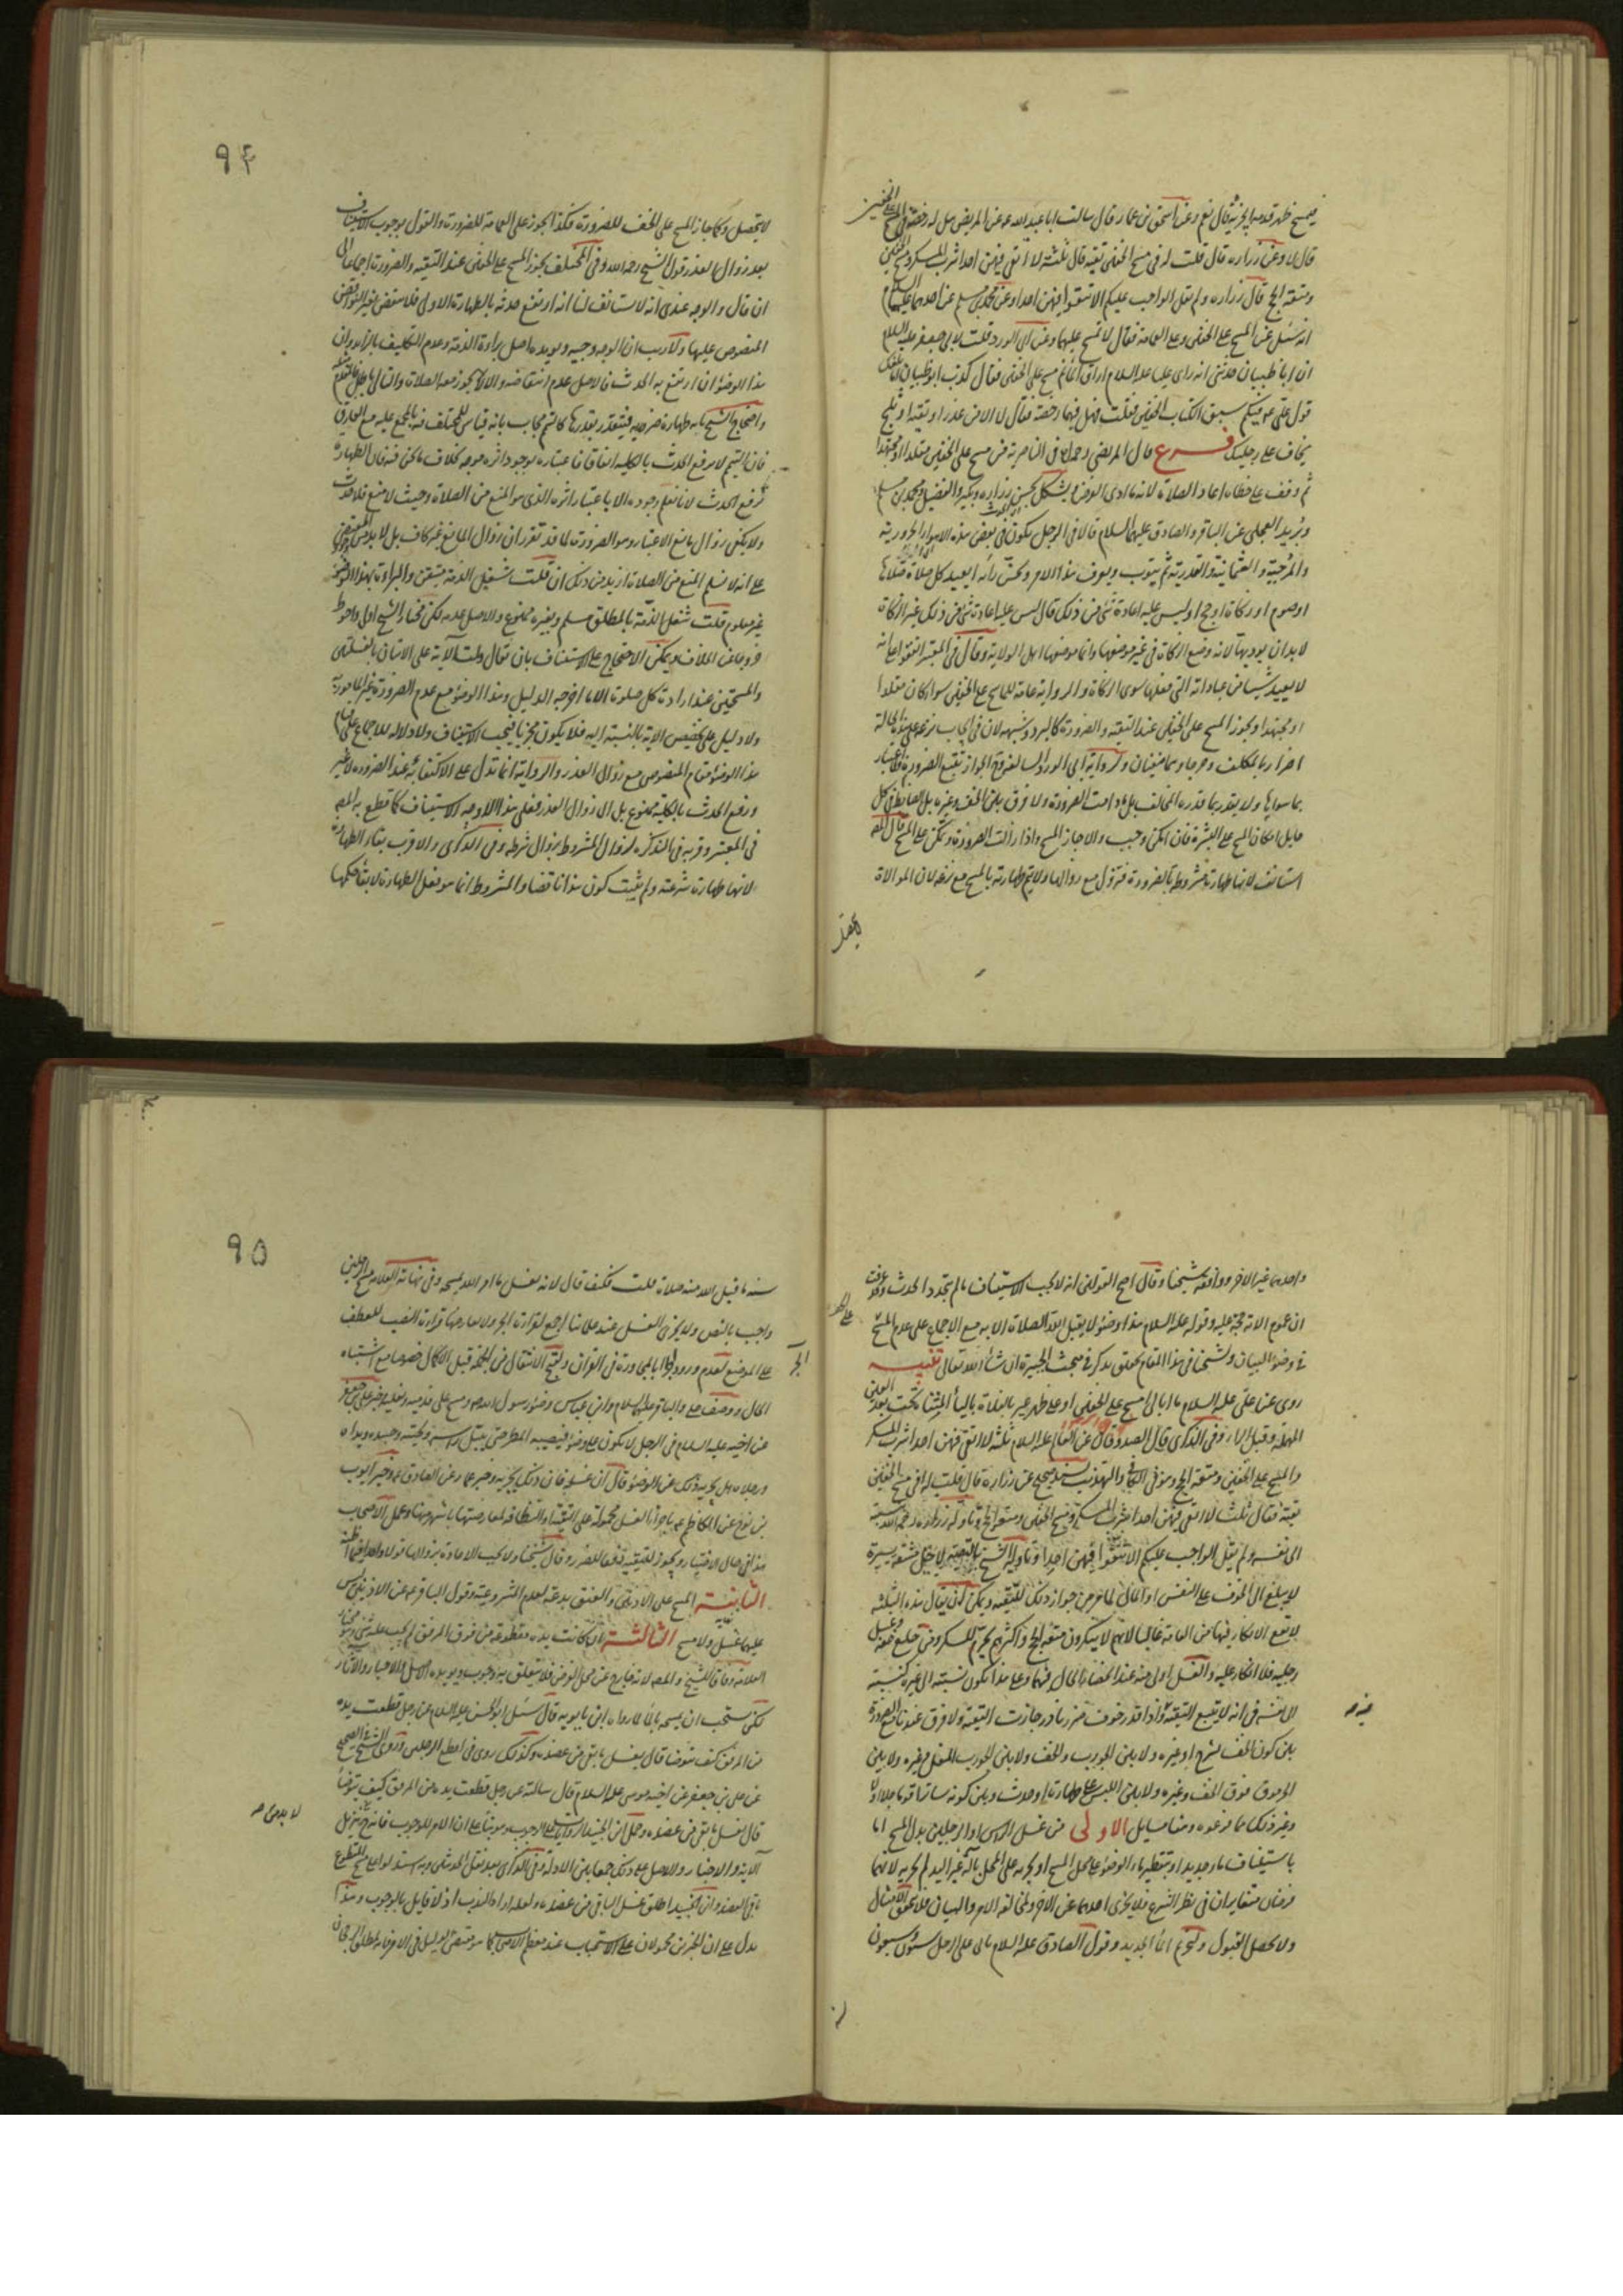 فيمسح ظهر قدميه ايجزيه قال نعم وعن اسحق بن عمار قال سالت ابا عبد الله عن المريض هل له رخصة في المسح
على الخفين
قال لا وعن زراره قال قلت له في مسح الخفين تقية قال ثلثة لا اتقي فيهن احدا شرب المسكر ومسح الخفين
ومتعة الحج قال زراره ولم يقل الواجب عليكم الا تتقوا فيهن احدا وعن محمد بن مسلم عن احدهما عليهما السلام
انه سئل عن المسح على الخفين وعلى العمامة فقال لا تمسح عليهما وعن ابي الورد قلت لابي جعفر عليه السلام
ان ابا ظبيان حدثني انه راى عليا عليه السلام اراق الماء ثم مسح على الخفين فقال كذب ابو ظبيان اما بلغك
قول علي ع فيكم سبق الكتاب الخفين فقلت فهل فيهما رخصة فقال لا الا من عذر او تقية او ثلج
تخاف على رجليك فرع قال المرتضى رحمه الله في الناصرية فمن مسح على الخفين مقلدا او مجتهدا
ثم وقف على خطاه اعاد الصلاة لانه ما ادى الفرض ويشكل بحسن زراره وبكير والفضيل ومحمد بن مسلم
وبريد العجلي عن الباقر والصادق عليهما السلام قالا في الرجل يكون في بعض هذه الاهواء الحرورية
والمرجية والعثمانية والقدرية ثم يتوب ويعرف هذا الامر ويحسن رأيه ايعيد كل صلاة صلاها
او صوم او زكاة او حج او ليس عليه اعادة شئ من ذلك قال ليس عليه اعادة شئ من ذلك غير الزكاة
لا بد ان يوديها لانه وضع الزكاة في غير موضعها وانما موضعها اهل الولاية وقال في المعتبر اتفقوا على انه
لا يعيد شيئا من عباداته التي فعلها سوى الزكاة والرواية عامة للماسح على الخفين سوا كان مقلدا
او مجتهدا ويجوز المسح على الخفين عند التقية والضرورة كالبرد وشبهه لان في ايجاب نزعه على هذه الحالة
اضرارا بالمكلف وحرجا وهما منفيان ولرواية ابي الورد السالفة
بما سواها ولا يتقدر بما قدره المخالف بل ما دامت الضرورة ولا فرق بين الخف وغيره بل الضابط في كل
حايل امكان المسح على البشرة فان امكن وجب والا جاز المسح واذا زالت الضرورة
استانف لانها طهارة مشروطة بالضرورة فتزول مع زوالها ولا يتم طهارته بالمسح مع نزعه لان الموالاة
٩٤
لا تحصل وكما جاز المسح على الخف للضرورة فكذا يجوز على العمامة للضرورة والقول بوجوب الاستيناف
بعد زوال العذر قول الشيخ رحمه الله وفي المختلف يجوز المسح على الخفين عند التقية والضرورة اجماعا الى
ان قال والوجه عندي انه لا يستانف لنا انه ارتفع حدثه بالطهارة الاولى فلا ينتقض بغير النواقض
المنصوص عليها ولا ريب ان الوجه وجيه ويويده اصل براءة الذمة وعدم التكليف بالزايد وان
هذا الوضوء ان ارتفع به الحدث فالاصل عدم انتقاضه والا لا يجوز معه الصلاة والتالي باطل
واحتجاج الشيخ بانه طهارة ضرورية فيتقدر بقدرها كالتيمم يجاب بانه قياس
فان التيمم لا يرفع الحدث بالكلية
لرفع الحدث لانا نعلم وجوده الا باعتبار اثره الذي هو المنع من الصلاة وحيث لا منع فلا حدث
ولا يكفي زوال مانع الاعتبار وهو الضرورة لما قد تقرر ان زوال المانع غير كاف بل لا بد من المقتضي
على انه لا نسلم المنع من الصلاة ازيد من ذلك ان قلت شغل الذمة متيقن والبراءة بهذا الوضوء
غير معلوم قلت شغل الذمة بالمطلق مسلم وبغيره ممنوع والاصل عدمه لكن مختار الشيخ اولى واحوط
خروجا من الخلاف ويمكن الاحتجاج على الاستيناف بان تقال دلت الآية على الاتيان بالغسلتين
والمسحتين عند ارادة كل صلوة الا ما اخرجه الدليل وهذا الوضوء مع عدم الضرورة غير المامور به
ولا دليل على تخصيص الاية بالنسبة اليه فلا يكون مجزيا فيجب الاستيناف ولا دلالة للاجماع على قيام
هذا الوضوء مقام المنصوص مع زوال العذر والرواية انما تدل على الاكتفاء به عند الضرورة لا غير
ورفع الحدث بالكلية ممنوع بل الى زوال العذر فعلى هذا الاوجه الاستيناف كما قطع به المص
في المعتبر وقربه في التذكره لزوال المشروط بزوال شرطه وفي الذكرى والاقرب بقاء الطهارة
لانها طهارة شرعية ولم يثبت كون هذا ناقضا والمشروط انما هو فعل الطهارة لا بقاء حكمها
واحدهما غير الاخر ووافقه شيخنا وقال اصح القولين انه لا يجب الاستيناف ما لم يتجدد الحدث وقد عرفت
ان عموم الاية حجة عليه وقوله عليه السلام هذا وضوء لا يقبل الله الصلاة الا به مع الاجماع على عدم المسح
في وضوء البيان ولشيخنا في هذا المقام تعلق يذكر في مبحث الجبيرة ان شاء الله تعالى تنبيه
روى عن علي عليه السلام ما ابالي امسح على الخفين او على ظهر عير بالفلاة بالياء المثناة تحت بعد العين
المهملة وقبل الراء وفي الذكرى قال الصدوق قال العالم عليه السلام ثلثة لا اتقي فيهن احدا شرب المسكر
والمسح على الخفين ومتعة الحج وهو في الكافي والتهذيب بسند صحيح عن زراره قال قلت له في مسح الخفين
تقية فقال ثلث لا اتقي فيهن احدا شرب المسكر ومسح الخفين ومتعة الحج وتاوله زرارة رحمه الله بنسبته
الى نفسه ولم يقل الواجب عليكم الا تتقوا فيهن احدا وتاوله الشيخ بالتقية لاجل مشقة يسيرة
لا يبلغ الى الخوف على النفس او المال لما مر من جواز ذلك للتقية ويمكن ان يقال هذه الثلثة
لا يقع الانكار فيها من العامة غالبا لانهم لا ينكرون متعة الحج واكثرهم يحرم المسكر ومن خلع خفه وغسل
رجليه فلا انكار عليه والغسل اولى منه عند انحصار الحال فيهما وعلى هذا يكون نسبته الى غيره كنسبته
الى نفسه في انه لا ينبغي التقية واذا قدر خوف ضرر نادر جازت التقية ولا فرق عندنا مع الضرورة
بين كون الخف لشرج او غيره ولا بين الجورب والخف ولا بين الجورب المنعل وغيره ولا بين
الجرموق فوق الخف وغيره ولا بين اللبس على طهارة او حدث وبين كونه ساترا قدما حلالا اولا
وغير ذلك مما فرعوه وهنا مسايل الاولى من غسل الراس او الرجلين بدل المسح اما
باستيناف ماء جديد او بتقطير ماء الوضوء على محل المسح او يجريه على المحل بآلة غير اليد لم يجزيه لانهما
فرضان متغايران في نظر الشرع فلا يجزى احدهما عن الاخر ولمخالفة الامر والبيان فلا يتحقق الامتثال
ولا يحصل القبول وقول الصادق عليه السلام ياتي على الرجل ستون وسبعون
٩٥
سنة ما قبل الله منه صلاة قلت فكيف قال لانه يغسل ما امر الله بمسحه وفي نهاية العلامة مسح الرجلين
واجب بالنص ولا يجزى الغسل عند علمائنا اجمع لقراءة الجر ولا يعارضها قراءة النصب للعطف
على الموضع لعدم ورود الجر بالمجاورة في القران ولقبح الانتقال من الجملة قبل الاكمال خصوصا مع اشتباه
الحال ووصف علي والباقر عليهما السلام وابن عباس وضوء رسول الله ص ومسح على قدميه ونعليه وخبر علي بن جعفر
عن اخيه عليه السلام في الرجل لا يكون على وضوء فيصيبه المطر حتى يبتل راسه ولحيته وجسده ويداه
ورجلاه هل يجزيه ذلك عن الوضوء قال ان غسله فان ذلك يجزيه وخبر عمار عن الصادق ع وخبر ايوب
بن نوح عن الكاظم ع باجزاء الغسل محمولة على التقية او التنظيف لمعارضتها باشهر منها وعمل الاصحاب
هذا في حال الاختيار ويجوز للتقية دفعا للضرر وقال شيخنا ولا يجب الاعادة بزوالها
الثانية المسح على الاذنين والعنق بدعة لعدم الشرعية وقول الباقر ع عن الاذنين ليس
عليهما غسل ولا مسح الثالثة ان كانت يده مقطوعة من فوق المرفق لم يجب عليه شئ وهو مختار
العلامة وفاقا للشيخ والمص لانه خارج عن محل الفرض فلا يتعلق به وجوب ويويده الاصل والاخبار والآثار
لكن يستحب ان يمسحه بالماء لما رواه ابن بابويه قال سئل ابو الحسن عليه السلام عن رجل قطعت يده
من المرفق كيف يتوضا قال يغسل ما بقي من عضده وكذلك روى في اقطع الرجلين وروى الشيخ في الصحيح
عن علي بن جعفر عن اخيه موسى عليه السلام قال سالته عن رجل قطعت يده من المرفق كيف يتوضا
قال يغسل ما بقي من عضده وحمل ابن الجنيد الرواية على الوجوب
الآية والاخبار والاصل على ذلك جمعا بين الادلة وفي الذكرى بعد نقل الحديث
باقي العضد وابن الجنيد اطلق غسل الباقي من عضده ولعله اراد الندب اذ لا قايل بالوجوب وهذا
يدل على ان الخبرين محمولان على الاستحباب عند معظم الاصحاب